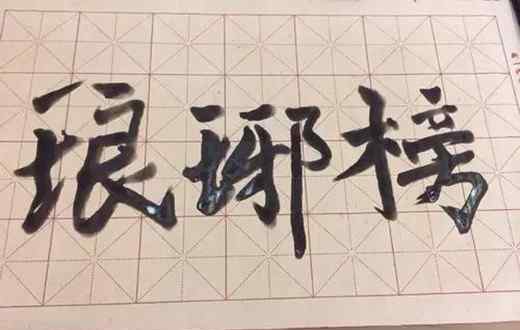 琅琊榜